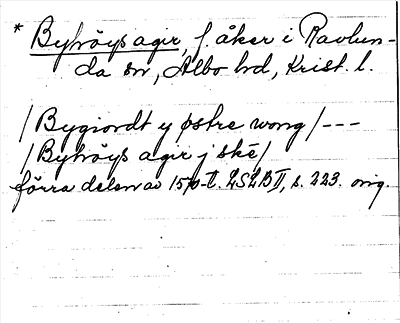 * Byhöys agir, f. åker i Ravlun-
da sn, Albo hd, Krist. l.
/ Bygiordt y østre wong / ---
/ Byhöys agir j skē /
förra delen av 1570-t. LSLB II, s. 223. orig.